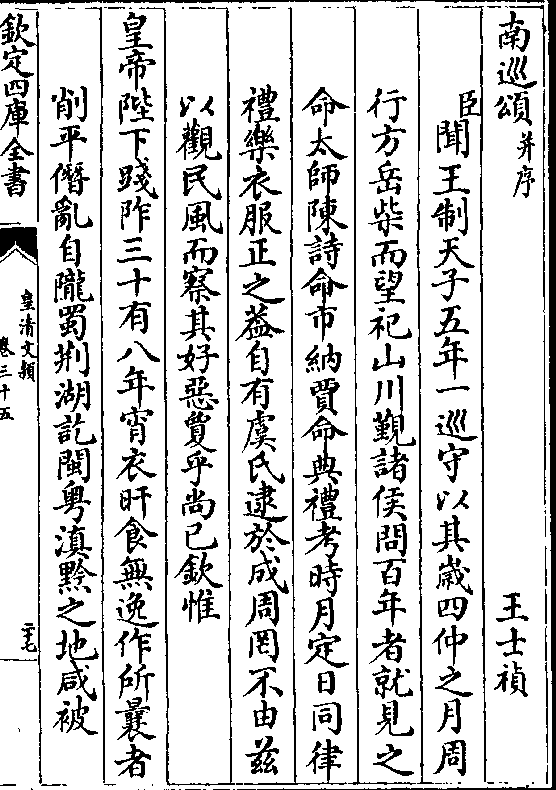 南巡頌并序
王士禎
臣聞王制天子五年一巡守以其歲四仲之月周
行方岳柴而望祀山川覲諸侯問百年者就見之
命太師陳詩命市納賈命典禮考時月定日同律
禮樂衣服正之葢自有虞氏逮於成周罔不由兹
以觀民風而察其好惡夐乎尚已欽惟
皇帝陛下踐阼三十有八年宵衣旰食無逸作所曩者
削平僭亂自隴蜀荆湖訖閩粤滇黔之地咸被
欽定四庫全書
皇清文穎
卷三十五
二十七